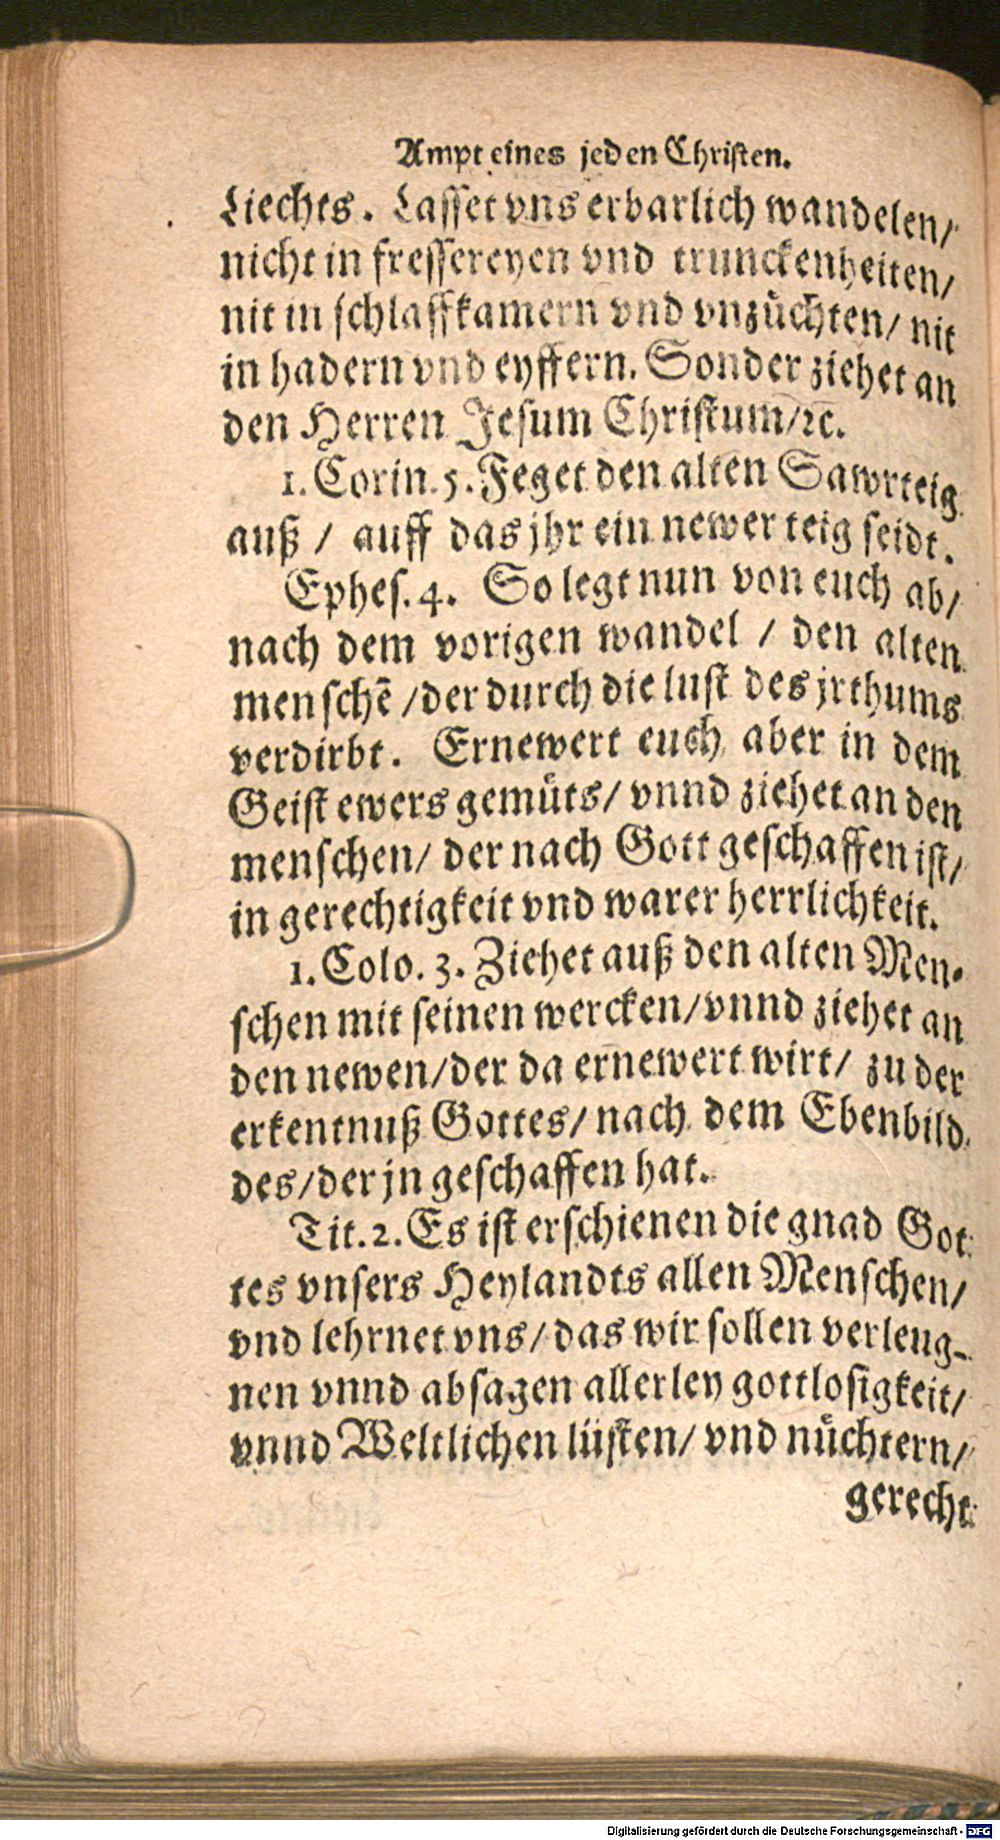 Ampt eines jeden Christen.
Liechts. Lasset vns erbarlich wandelen/
nicht in fressereyen vnd trunckenheiten/
nit in schlaffkamern vnd vnzüchten/ nit
in hadern vnd eyffern. Sonder ziehet an
den Herren Jesum Christum/ꝛc.
1. Corin. 5. Feget den alten Sawrteig
auß / auff das jhr ein newer teig seidt.
Ephes. 4. So legt nun von euch ab/
nach dem vorigen wandel / den alten
menschē /der durch die lust des jrthums
verdirbt. Ernewert euch aber in dem
Geist ewers gemüts/ vnnd ziehet an den
menschen/ der nach Gott geschaffen ist/
in gerechtigkeit vnd warer herrlichkeit.
1. Colo. 3. Ziehet auß den alten Men-
schen mit seinen wercken/vnnd ziehet an
den newen/der da ernewert wirt/ zu der
erkentnuß Gottes/ nach dem Ebenbild
des/der jn geschaffen hat.
Tit. 2. Es ist erschienen die gnad Got-
tes vnsers Heylandts allen Menschen/
vnd lehrnet vns/ das wir sollen verleug-
nen vnnd absagen allerley gottlosigkeit/
vnnd Weltlichen lüsten/ vnd nüchtern/
gerecht
Digitalisierung gefördert durch die Deutsche Forschungsgemeinschaft - DFG